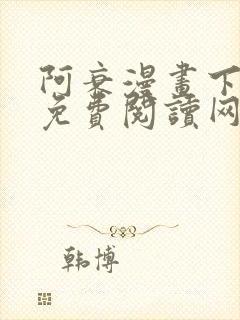 阿衰漫畫下
免費閱讀网
韩博